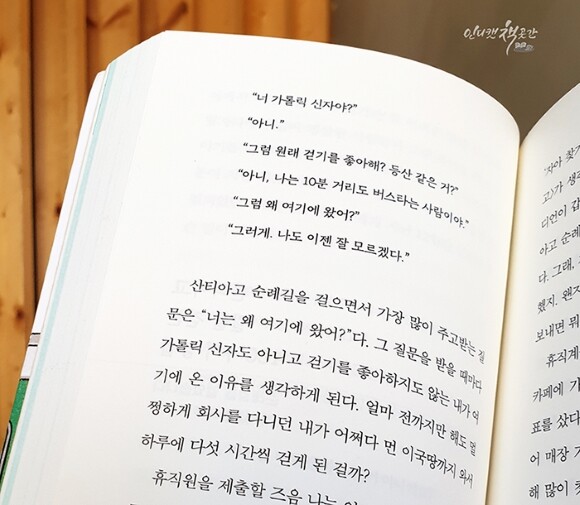 인디캣책곳간
"너 가톨릭 신자야?"
"아니."
"그럼 원래 걷기를 좋아해? 등산 같은 거?"
"아니, 나는 10분 거리도 버스타는 사람이야."
"그럼 왜 여기에 왔어?"
"그러게. 나도 이젠 잘 모르겠다."
산티아고 순례길을 걸으면서 가장 많이 주고받는 질
문은 "너는 왜 여기에 왔어?"다. 그 질문을 받을 때마다
가톨릭 신자도 아니고 걷기를 좋아하지도 않는 내가 여
기에 온 이유를 생각하게 된다. 얼마 전까지만 해도 멀
쩡하게 회사를 다니던 내가 어쩌다 먼 이국땅까지 와서
하루에 다섯 시간씩 걷게 된 걸까?
휴직원을 제출할 즈음 나는
"자아 찾기
고)가 생
디언이 갑
아고 순례
다. 그래,
했지. 왠지
보내면 뭐
휴직계
카페에 가
표를 샀다
어 매장
해 많이 찾